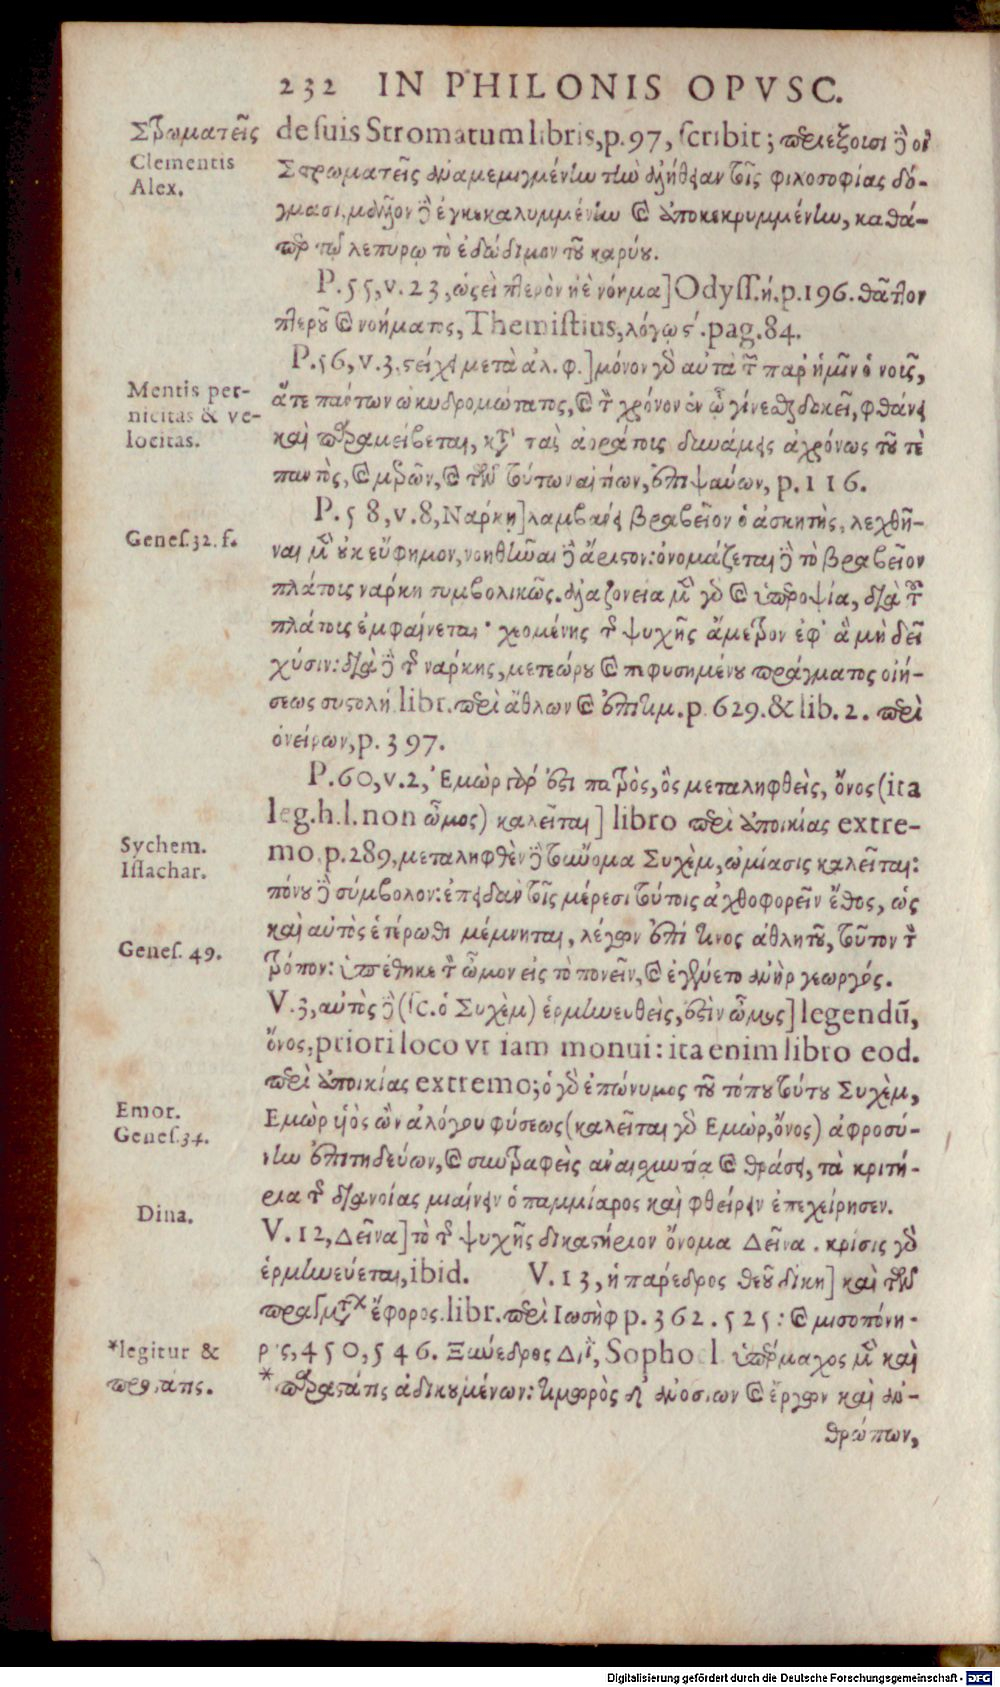 232 IN PHILONIS OPVSC.
Στρωματεῖς
Clementis
Alex.
de suis Stromatum libris, p. 97, scribit; περιέξουσι δὲ οἱ
Στρωματεῖς ἀναμεμιγμένην τὴν ἀλήθειαν τοῖς φιλοσοφίας δό-
γμασι, μᾶλλον δὲ ἐγκεκαλυμμένην καὶ ἀποκεκρυμμένην, καθά-
περ τῷ λεπύρῳ τὸ ἐδώδιμον τοῦ καρύου.
P. 55, v. 23, ὡςεὶ πτερὸν ἠὲ νόημα] Odyss. ή. p. 196. θᾶττον
πτεροῦ καὶ νοήματος, Themistius, λόγῳ ς΄. pag. 84.
P. 56, v. 3, μετὰ ἀλ. φ.] μόνον γὰρ αὐτὰ τῶν παρ' ἡμῖν ὁ νοῦς,
Mentis per-
nicitas & ve-
locitas.
ἅτε πάντων ὠκυδρομώτατος, καὶ τὸν χρόνον ἐν ᾧ γίνεσθαι δοκεῖ, φθάνει
καὶ παραμείβεται, κατὰ τὰς ἀοράτους δυνάμεις ἀχρόνως τοῦ τε
παντὸς, καὶ μερῶν, καὶ τῶν τούτων αἰτίων, ἐπιψαύων, p. 116.
Genes. 32. f.
P. 58, v. 8, Νάρκη] λαμβάνει βραβεῖον ὁ ἀσκητὴς, λεχθῆ-
ναι μὲν οὐκ εὔφημον, νοηθῆναι δὲ ἄριστον: ὀνομάζεται δὲ τὸ βραβεῖον
πλάτους νάρκη συμβολικῶς. ἀλαζονεία μὲν γὰρ καὶ ὑπεροψία, διὰ τοῦ
πλάτους ἐμφαίνεται· χεομένης τῆς ψυχῆς ἄμετρον ἐφ' ἃ μὴ δεῖ
χύσιν: διὰ δὲ τῆς νάρκης, μετεώρου καὶ πεφυσημένου πράγματος οἰή-
σεως συστολή. libr. περὶ ἄθλων καὶ ἐπιτιμ. p. 629. & lib. 2. περὶ
ὀνείρων, p. 397.
P. 60, v. 2, Ἐμὼρ γάρ ἐστι πατρὸς, ὃς μεταληφθεὶς, ὄνος (ita
leg. h. l. non ὦμος) καλεῖται] libro περὶ ἀποικίας extre-
Sychem.
Issachar.
mo, p. 289, μεταληφθὲν δὲ τοὔνομα Συχὲμ, ὠμίασις καλεῖται:
πόνου δὲ σύμβολον: ἐπειδὰν τοῖς μέρεσι τούτοις ἀχθοφορεῖν ἔθος, ὡς
καὶ αὐτὸς ἑτέρωθι μέμνηται, λέγων ἐπί τινος ἀθλητοῦ, τοῦτον τὸν
Genes. 49.
τρόπον: ὑπέθηκε τὸν ὦμον εἰς τὸ πονεῖν, καὶ ἐγένετο ἀνὴρ γεωργός.
V. 3, αὐτὸς δὲ (sc. ὁ Συχὲμ) ἑρμηνευθεὶς, ἐστὶν ὦμος] legendũ,
ὄνος, priori loco vt iam monui: ita enim libro eod.
περὶ ἀποικίας extremo; ὁ γὰρ ἐπώνυμος τοῦ τόπου τούτου Συχὲμ,
Emor.
Genes. 34.
Ἐμὼρ υἱὸς ὢν ἀλόγου φύσεως (καλεῖται γὰρ Ἐμὼρ, ὄνος) ἀφροσύ-
νην ἐπιτηδεύων, καὶ συντραφεὶς ἀναισχυντίᾳ καὶ θράσει, τὰ κριτή-
ρια τῆς διανοίας μιαίνειν ὁ παμμίαρος καὶ φθείρειν ἐπεχείρησεν.
Dina.
V. 12, Δεῖνα] τὸ τῆς ψυχῆς δικαστήριον ὄνομα Δεῖνα. κρίσις γὰρ
ἑρμηνεύεται, ibid. V. 13, ἡ πάρεδρος θεοῦ δίκη] καὶ τῶν
πραγμάτων ἔφορος. libr. περὶ Ἰωσὴφ p. 362. 525: καὶ μισοπόνη-
*legitur &
προστάτις.
ρος, 450, 546. Ξυνέδρος Διὸς, Sophocl. ὑπέρμαχος μὲν καὶ
* παραστάτις ἀδικουμένων: τιμωρὸς δ' ἀνοσίων καὶ ἔργων καὶ ἀν-
θρώπων,
Digitalisierung gefördert durch die Deutsche Forschungsgemeinschaft - DFG